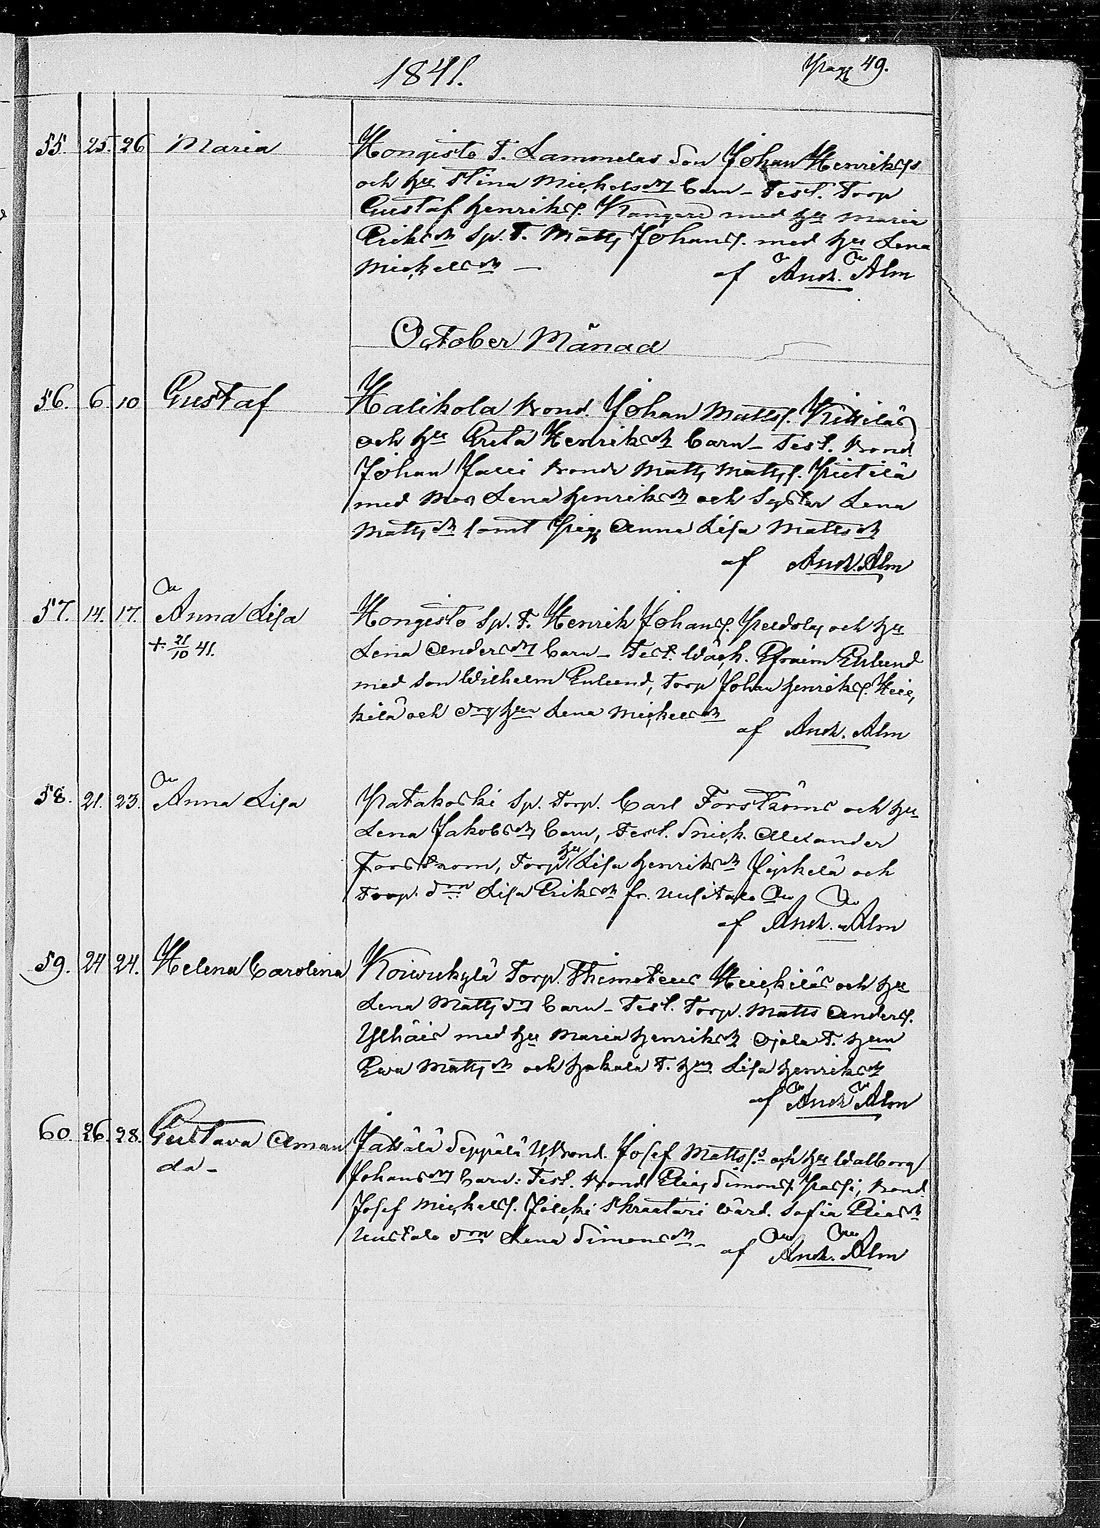 1841. Pag 49.
55. 25. 26 Maria Hongisto T. Lammelas Son Johan Henrikss
och hu Stina Michelsdr barn – Test. Torp
Gustaf Henriks. Kangare med hu Maria
Eriksdr Sp. T. Matts Johans. med hu Lena
Michelsdr — af And. Alm
October Månad
56. 6. 10 Gustaf Halikola Bond. Johan Mattss.
och hu Greta Henriksdr barn – Test. Bond
Johan Jacci Bonde Matts Mattss. Pietilä
med Mor Lena Henriksdr och Syster Lena
Mattsdr samt Pig Anna Lisa Mattsdr
af And. Alm
57. 14. 17. Anna Lisa Hongisto Sp. T. Henrik Johans. och hu
+ 21/10 41. Lena Andersdr barn – Test. Efraim Enlund
med son Wilhelm Enlund, Torp Johan Henriks. Heic,
kilä och Lena Michelsdr
af And. Alm
58. 21. 23. Anna Lisa Patakoski Sp. Torp. Carl Forströms och hu
Lena Jakobsdr barn, Test. Snick. Alexander
Forsstrom, Torp hu Lisa Henriksdr och
Torp. Lisa Eriksdr fr. Uusitalo
af And. Alm
59. 24 24. Helena Carolina Koiwukylä Torp. Thimoteus Heickiläs och hu
Lena Mattsdr barn – Test. Torp. Matts Anders.
Ylhäis med hu Maria Henriksdr Ojala T. hun
Ewa Mattsdr och Hakala T. Lisa Henriksdr
af And. Alm
60. 26. 28. Gustava Aman Jalkälä Seppälä Bond. Josef Mattss. och hu Walborg
da – Johansdr barn: Test. Bond Elias Simons. Passi, Bond
Josef Michelss. Skraatari wärd. Sofia Eliasdr
Uustalo Lena Simonsdr – af And. Alm